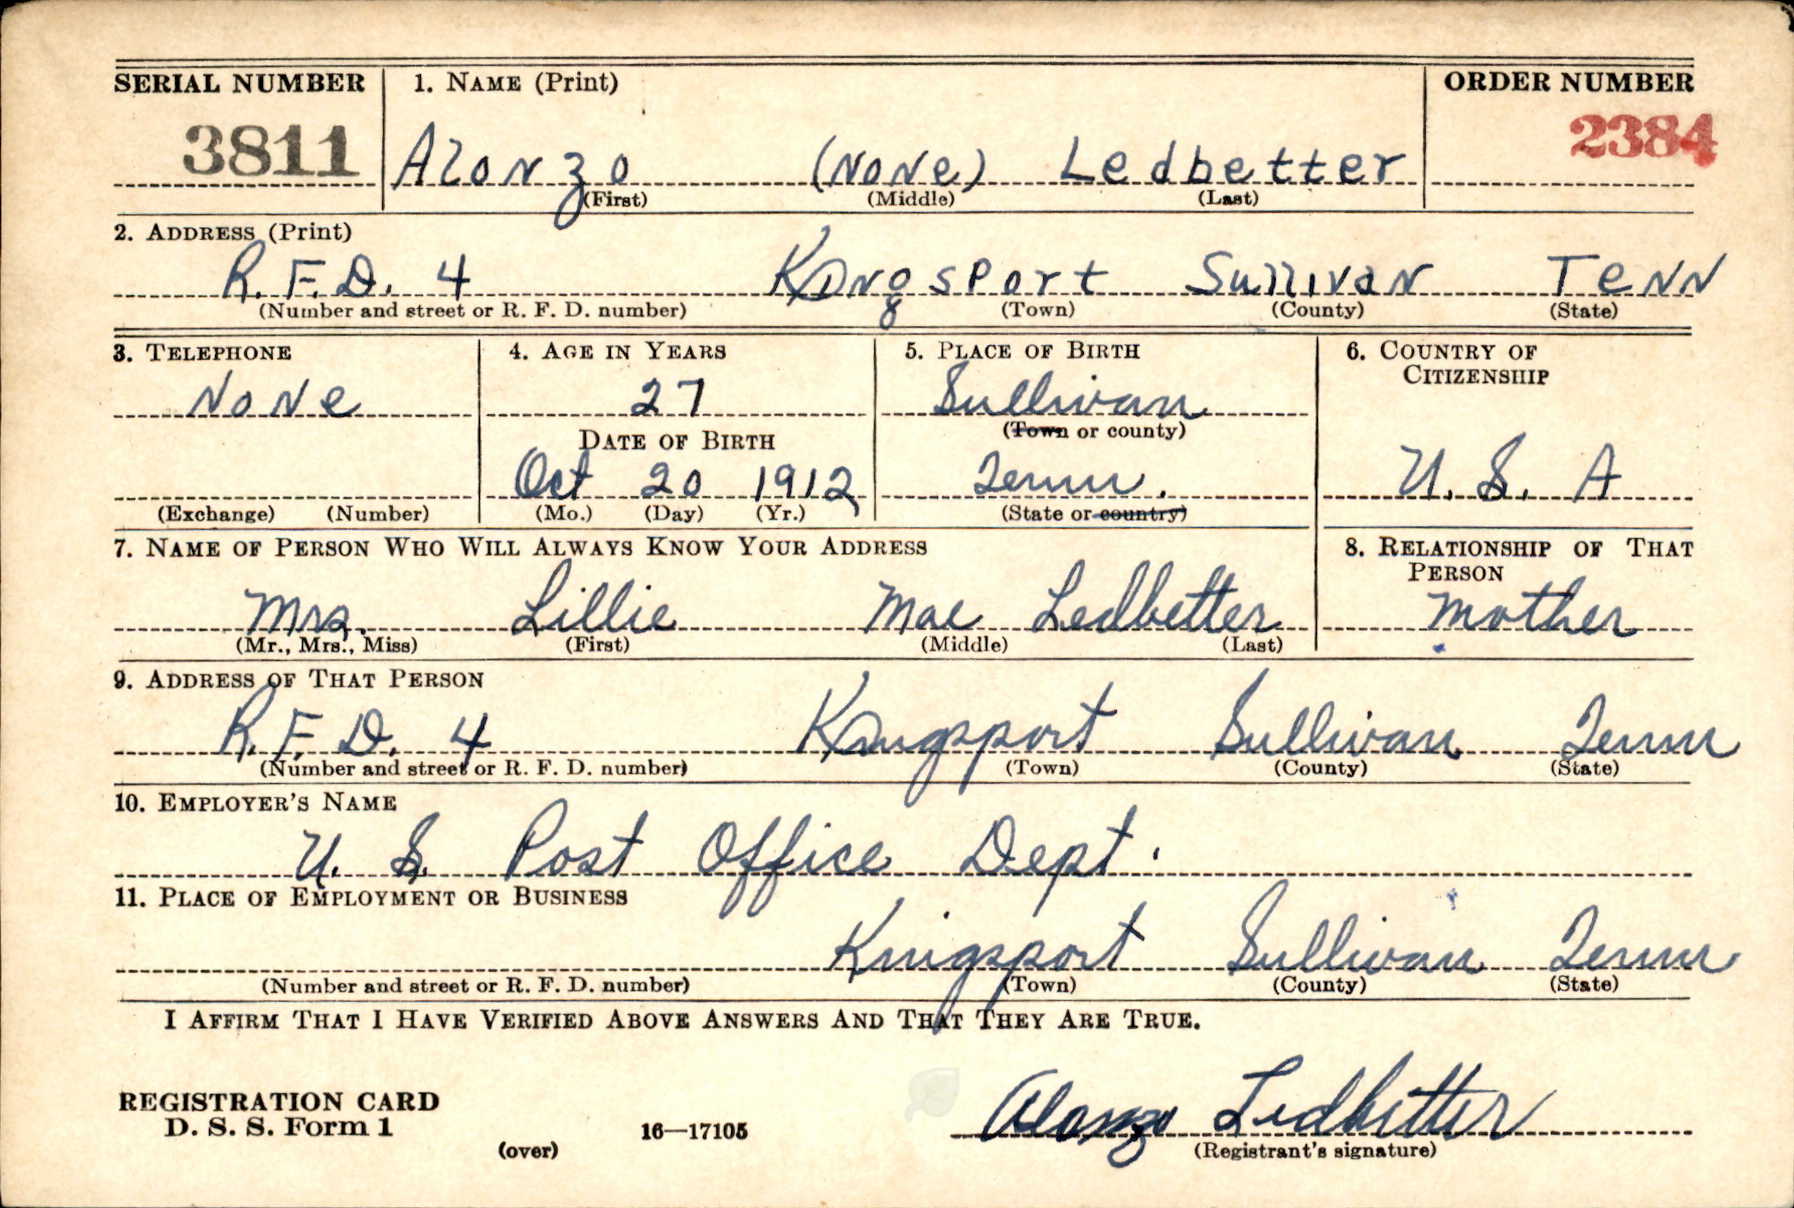 SERIAL NUMBER 1. NAME (Print) ORDER NUMBER
3811 Alonzo (None) Ledbetter 2384
(First) (Middle) (Last)
2. ADDRESS (Print)
R. F. D. 4 Kingsport Sullivan Tenn
(Number and street or R. F. D. number) (Town) (County) (State)
3. TELEPHONE 4. AGE IN YEARS 5. PLACE OF BIRTH 6. COUNTRY OF
CITIZENSHIP
None 27 Sullivan
(Town or county)
DATE OF BIRTH
Oct 20 1912 Tenn. U. S. A
(Exchange) (Number) (Mo.) (Day) (Yr.) (State or country)
7. NAME OF PERSON WHO WILL ALWAYS KNOW YOUR ADDRESS 8. RELATIONSHIP OF THAT
PERSON
Mrs. Lillie Mae Ledbetter Mother
(Mr., Mrs., Miss) (First) (Middle) (Last)
9. ADDRESS OF THAT PERSON
R. F. D. 4 Kingsport Sullivan Tenn
(Number and street or R. F. D. number) (Town) (County) (State)
10. EMPLOYER'S NAME
U. S. Post Office Dept.
11. PLACE OF EMPLOYMENT OR BUSINESS
Kingsport Sullivan Tenn
(Number and street or R. F. D. number) (Town) (County) (State)
I AFFIRM THAT I HAVE VERIFIED ABOVE ANSWERS AND THAT THEY ARE TRUE.
REGISTRATION CARD
D. S. S. Form 1
(over) 16—17105
Alonzo Ledbetter
(Registrant's signature)